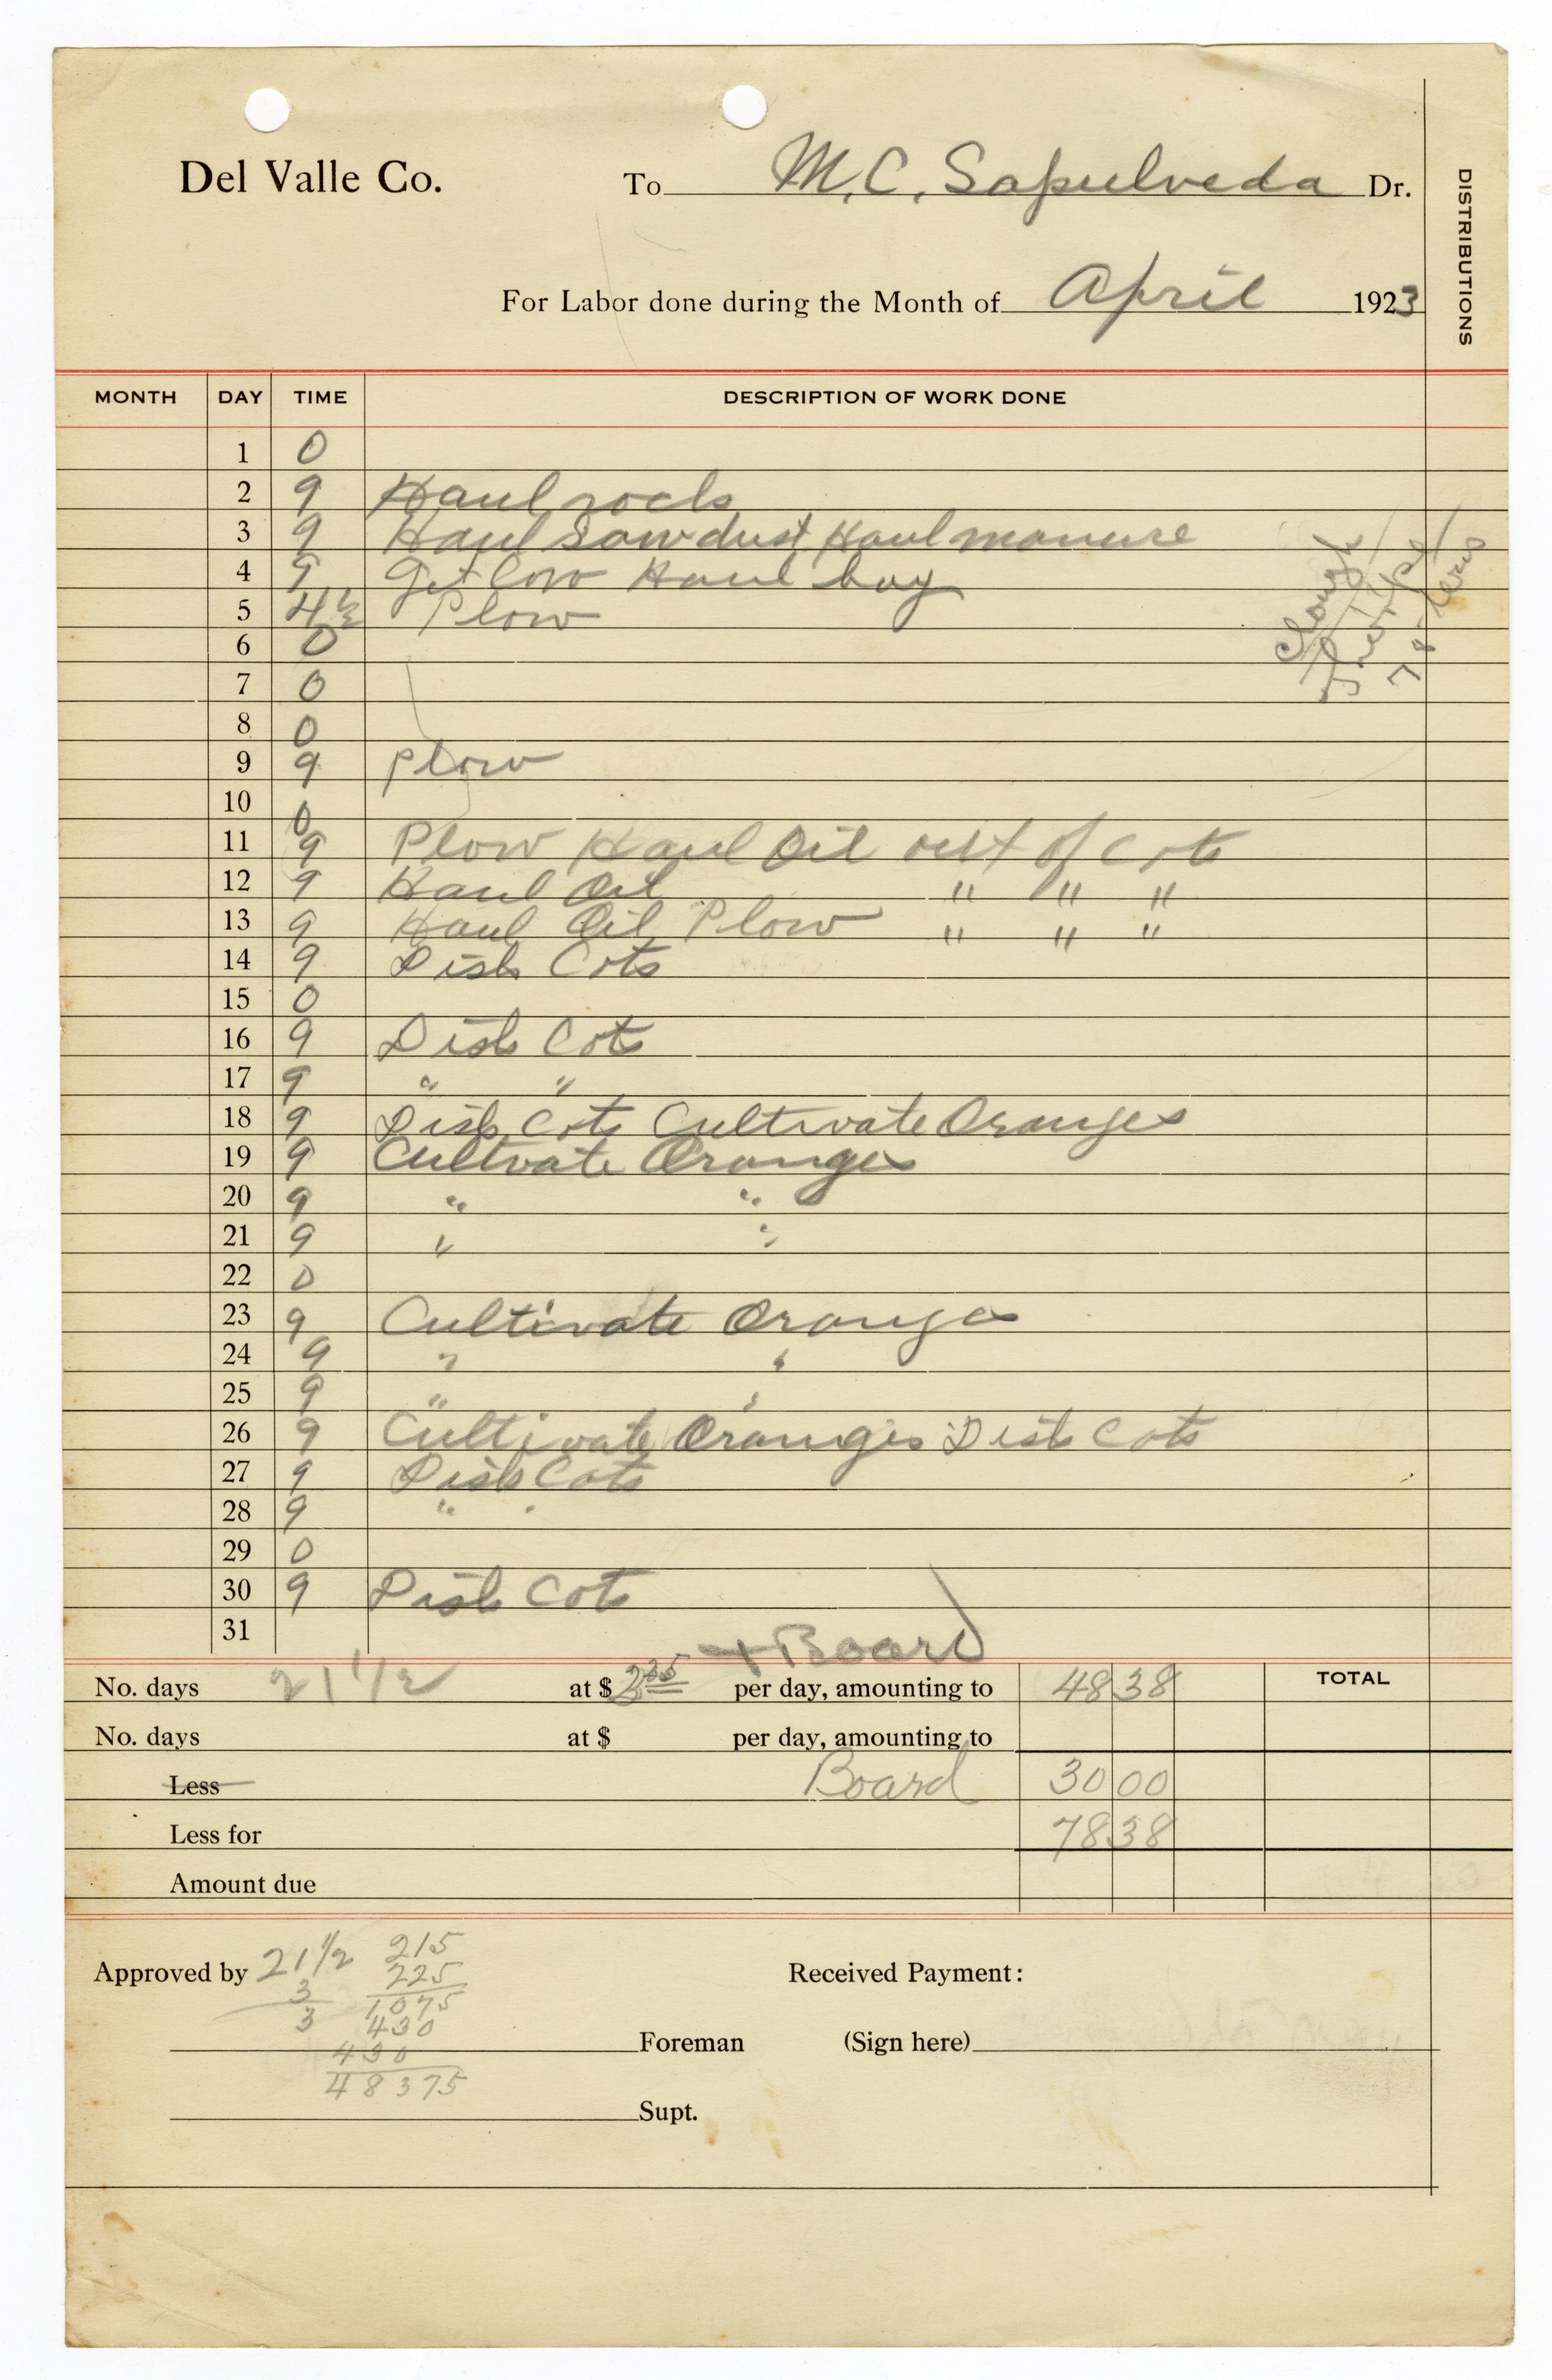 Del Valle Co. To M. C. Sapulveda Dr.
DISTRIBUTIONS
For Labor done during the Month of April 1923
MONTH DAY TIME DESCRIPTION OF WORK DONE
1 0
2 9 Haul rocks
3 9 Haul Sawdust Haul manure
4 9 Get cow Haul hay
5 4 1/2 Plow
6 0
7 0
8 0
9 9 Plow
10 0
11 9 Plow Haul Oil out of Cots
12 9 Haul Oil " " "
13 9 Haul Oil Plow " " "
14 9 Disk Cots
15 0
16 9 Disk Cots
17 9 " "
18 9 Disk Cots Cultivate Oranges
19 9 Cultvate Oranges
20 9 " "
21 9 " "
22 0
23 9 Cultivate Oranges
24 9 " "
25 9 " "
26 9 Cultivate Oranges Disk Cots
27 9 Disk Cots
28 9 " "
29 0
30 9 Disk Cots
31
+ Board
No. days 21 1/2 at $ 2.25 per day, amounting to 48 38 TOTAL
No. days at $ per day, amounting to
Less Board 30 00
Less for 78 38
Amount due
Approved by 21 1/2 215
3 225
3 1075
430
430
48375
Received Payment:
Foreman (Sign here)
Supt.